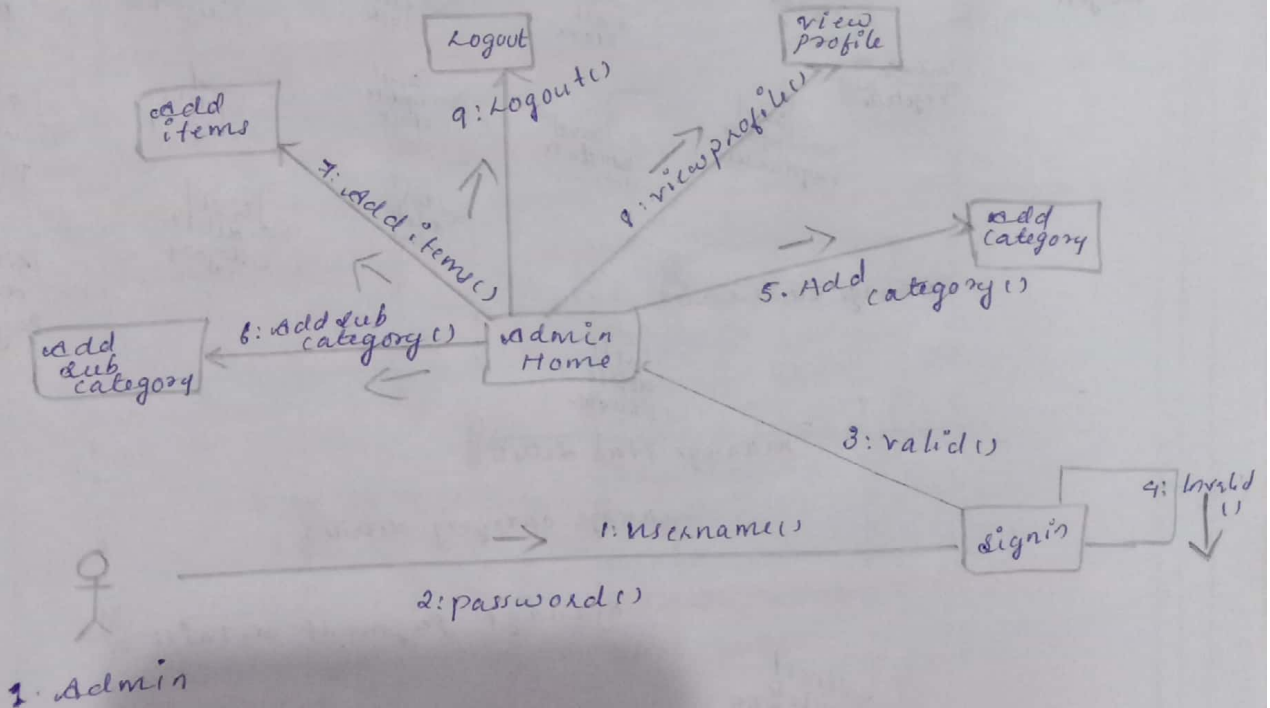 Logout
view
profile
Add
items
9: Logout()
8: viewprofile()
7: Add items()
Add
category
5. Add
category()
6: Add sub
category()
Add
sub
category
Admin
Home
3: valid()
4: Invalid
()
1: username()
signin
2: password()
1. Admin